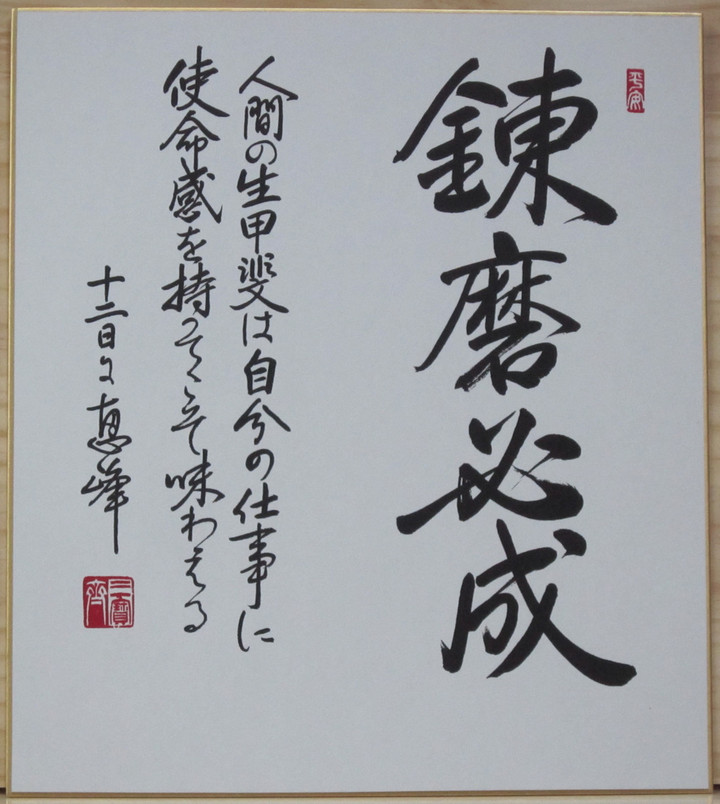 平安
錬磨必成
人間の生甲斐は自分の仕事に
使命感を持ってこそ味わえる
恵峰
三寶齊